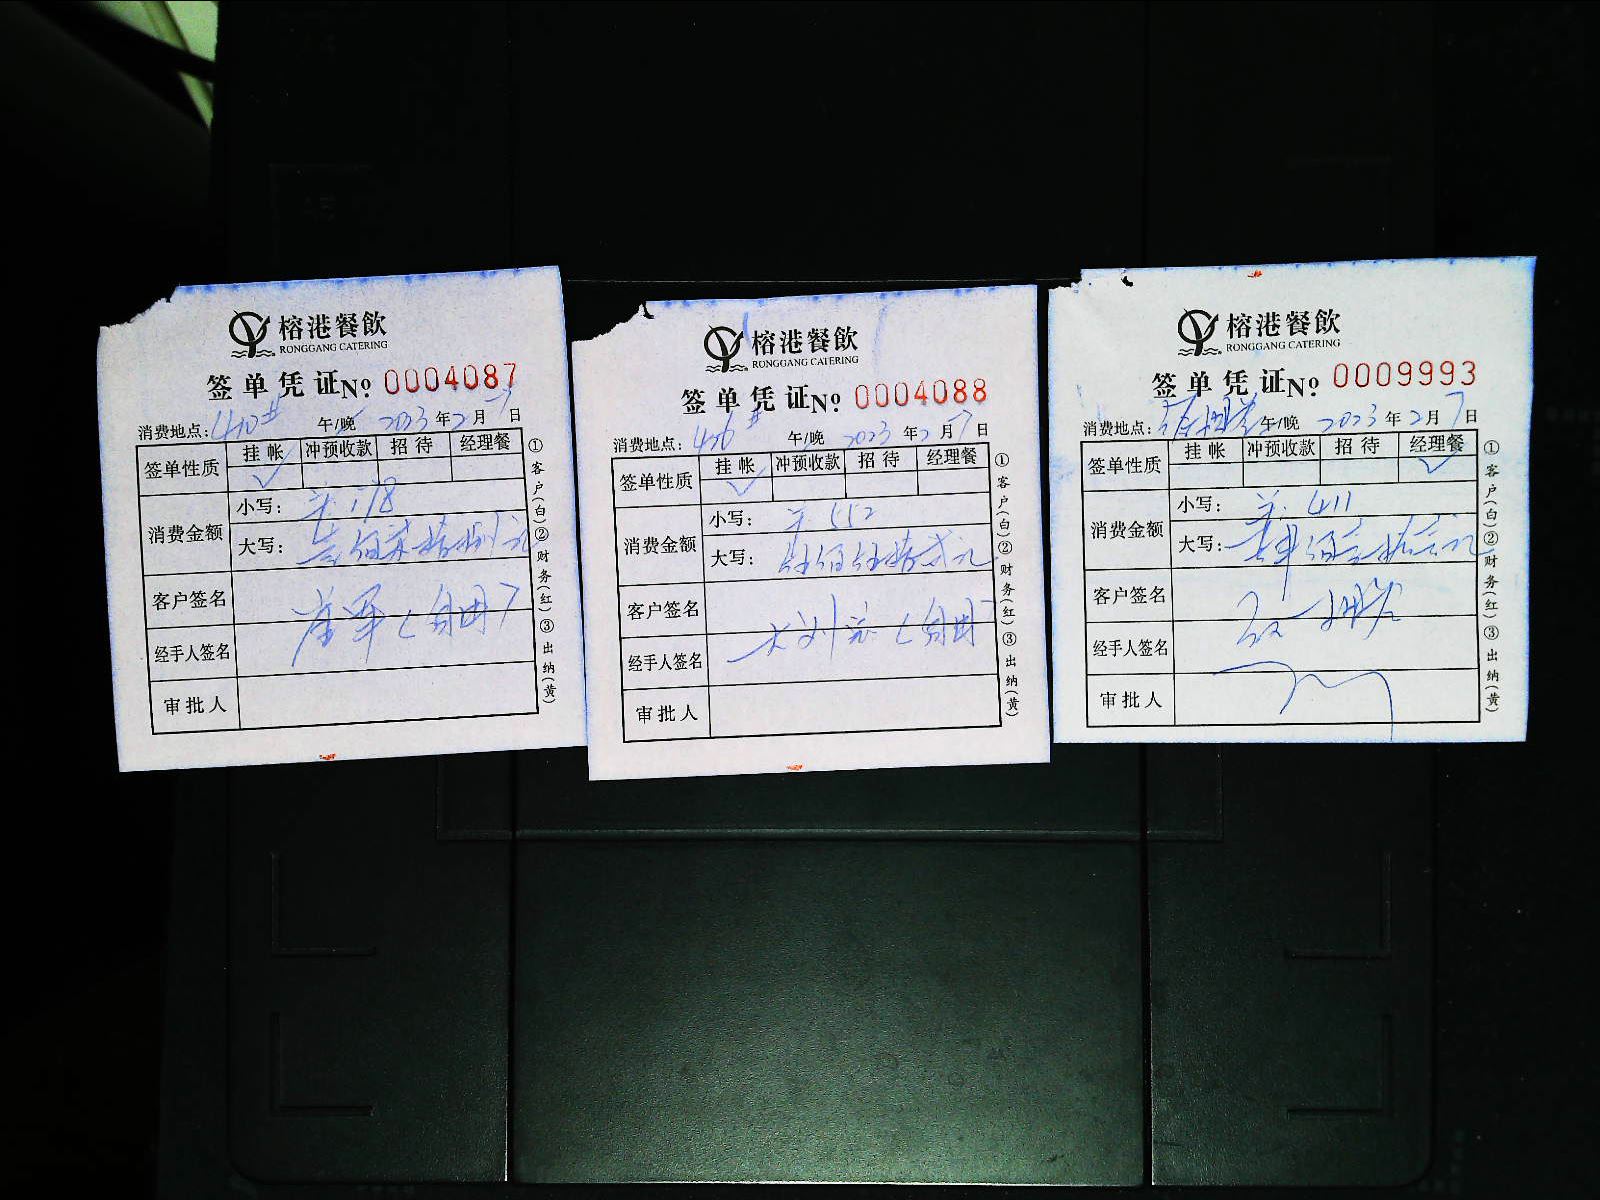 榕港餐飲
RONGGANG CATERING
签单凭证 No. 0004087
消费地点: 410# 午/晚 2023年2月7日
签单性质 挂帐 冲预收款 招待 经理餐
✓
消费金额 小写: 178
大写: 壹佰柒拾捌元
客户签名
(自用)
经手人签名
审批人
①客户(白)②财务(红)③出纳(黄)
榕港餐飲
RONGGANG CATERING
签单凭证 No. 0004088
消费地点: 426# 午/晚 2023年2月7日
签单性质 挂帐 冲预收款 招待 经理餐
✓
消费金额 小写: 552
大写: 伍佰伍拾贰元
客户签名
(自用)
经手人签名
审批人
①客户(白)②财务(红)③出纳(黄)
榕港餐飲
RONGGANG CATERING
签单凭证 No. 0009993
消费地点: 午/晚 2023年2月7日
签单性质 挂帐 冲预收款 招待 经理餐
✓
消费金额 小写: 411
大写: 肆佰壹拾壹元
客户签名
经手人签名
审批人
①客户(白)②财务(红)③出纳(黄)